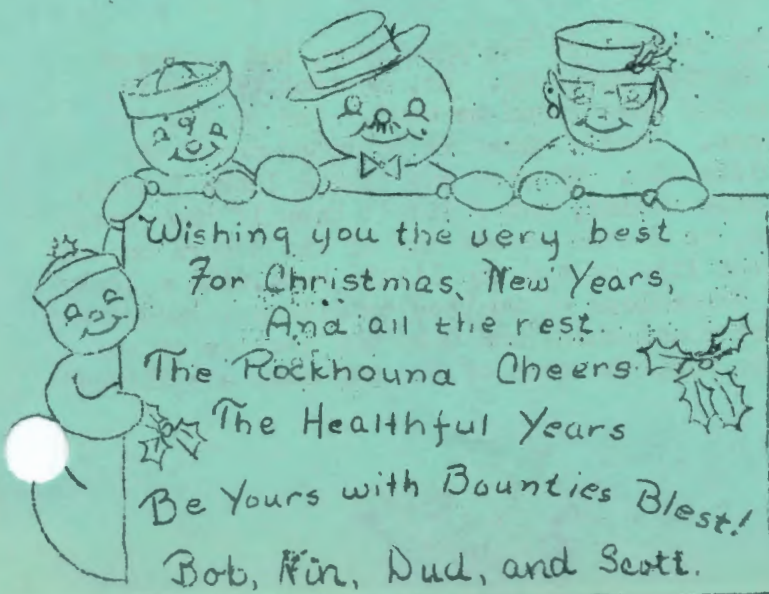 Wishing you the very best
For Christmas, New Years,
And all the rest.
The Rockhound Cheers
The Healthful Years
Be Yours with Bounties Blest!
Bob, Nin, Dud, and Scott.